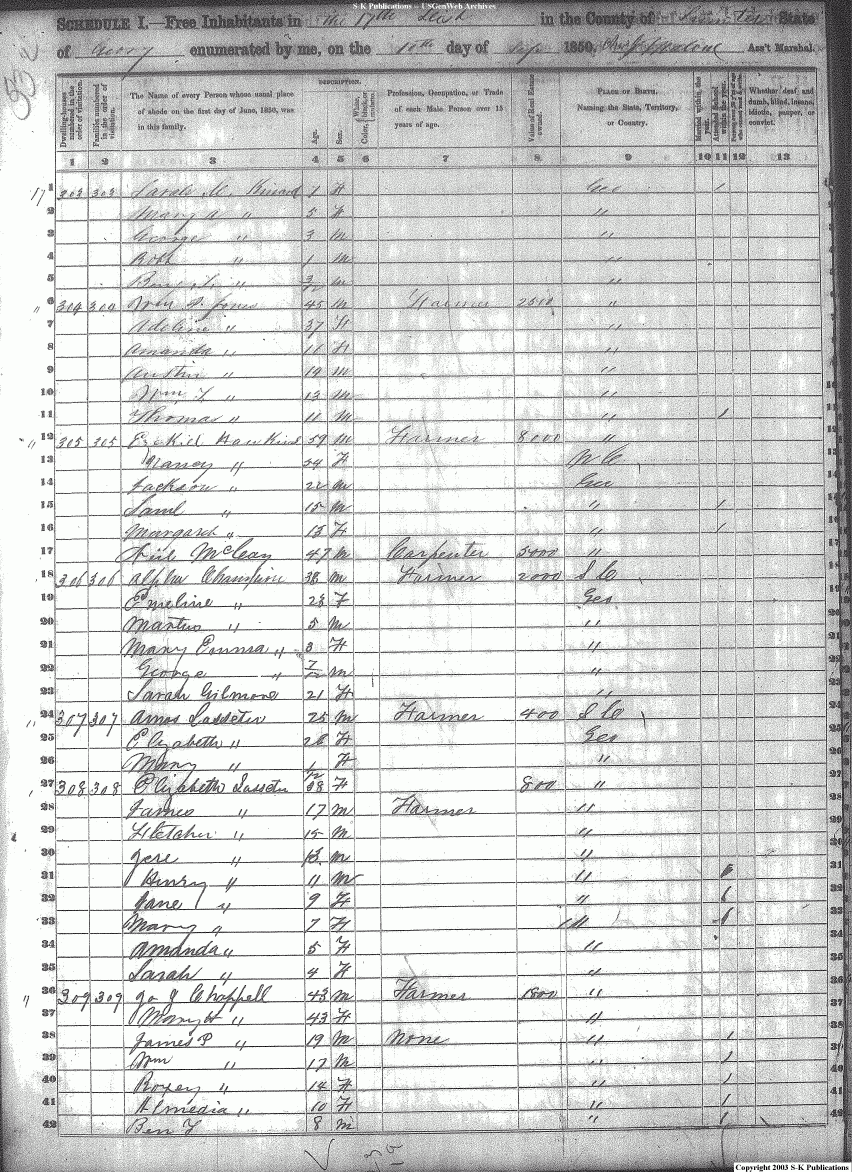 S-K Publications -- USGenWeb Archives
SCHEDULE I.—Free Inhabitants in the 17th Dist in the County of Sumter State
of Georg enumerated by me, on the 10th day of Sep 1850. Ass't Marshal.
DESCRIPTION.
Dwelling-houses numbered in the order of visitation.
Families numbered in the order of visitation.
The Name of every Person whose usual place of abode on the first day of June, 1850, was in this family.
Age.
Sex.
Color, White, black, or mulatto.
Profession, Occupation, or Trade of each Male Person over 15 years of age.
Value of Real Estate owned.
PLACE OF BIRTH. Naming the State, Territory, or Country.
Married within the year.
Attended School within the year.
Whether deaf and dumb, blind, insane, idiotic, pauper, or convict.
1 2 3 4 5 6 7 8 9 10 11 12 13
1 303 303 Sarah Kinard F Geo /
2 Mary A " 5 F "
3 George " 3 m "
4 " 1 m "
5 3/12 m
6 304 304 Wm Jones 45 m Farmer 2500 "
7 Adeline " 37 F "
8 Amanda " F "
9 Austin " 19 m "
10 Wm " 13 m "
11 Thomas " 11 M " /
12 305 305 Ezekiel Hawkins 59 m Farmer 8000 "
13 Nancy " 54 F N C
14 Jackson " m Geo
15 Saml " 15 m " /
16 Margaret " 13 F " /
17 McClean 47 m Carpenter 5000 "
18 306 306 Alpha Champion 38 m Farmer 2000 S C
19 Emeline " 28 F Geo
20 " 5 m "
21 Mary Emma " 3 F "
22 George " 7/12 m "
23 Sarah Gilmore 21 F "
24 307 307 Amos Lasseter 25 m Farmer 400 S C
25 Elizabeth " 26 F Geo
26 Mary " 1/12 F "
27 308 308 Elizabeth Lasseter 38 F 800 "
28 James " 17 m Farmer "
29 Fletcher " 15 m "
30 Jere " 13 m "
31 Henry " 11 m " /
32 Jane " 9 F " /
33 Mary " 7 F " /
34 Amanda " 5 F "
35 Sarah " 4 F "
36 309 309 Jo J Chappell 43 m Farmer 1800 "
37 Mary H " 43 F "
38 James P " 19 m None " /
39 Wm " 17 m " /
40 Roxey " 14 F " /
41 Almedia " 10 F " /
42 Ben 8 m " /
Copyright 2003 S-K Publications